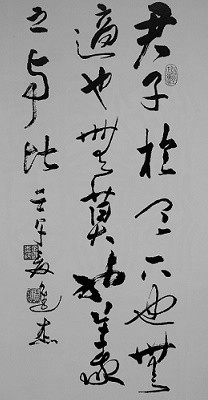 君子於天下也無
適也無莫義
之與比